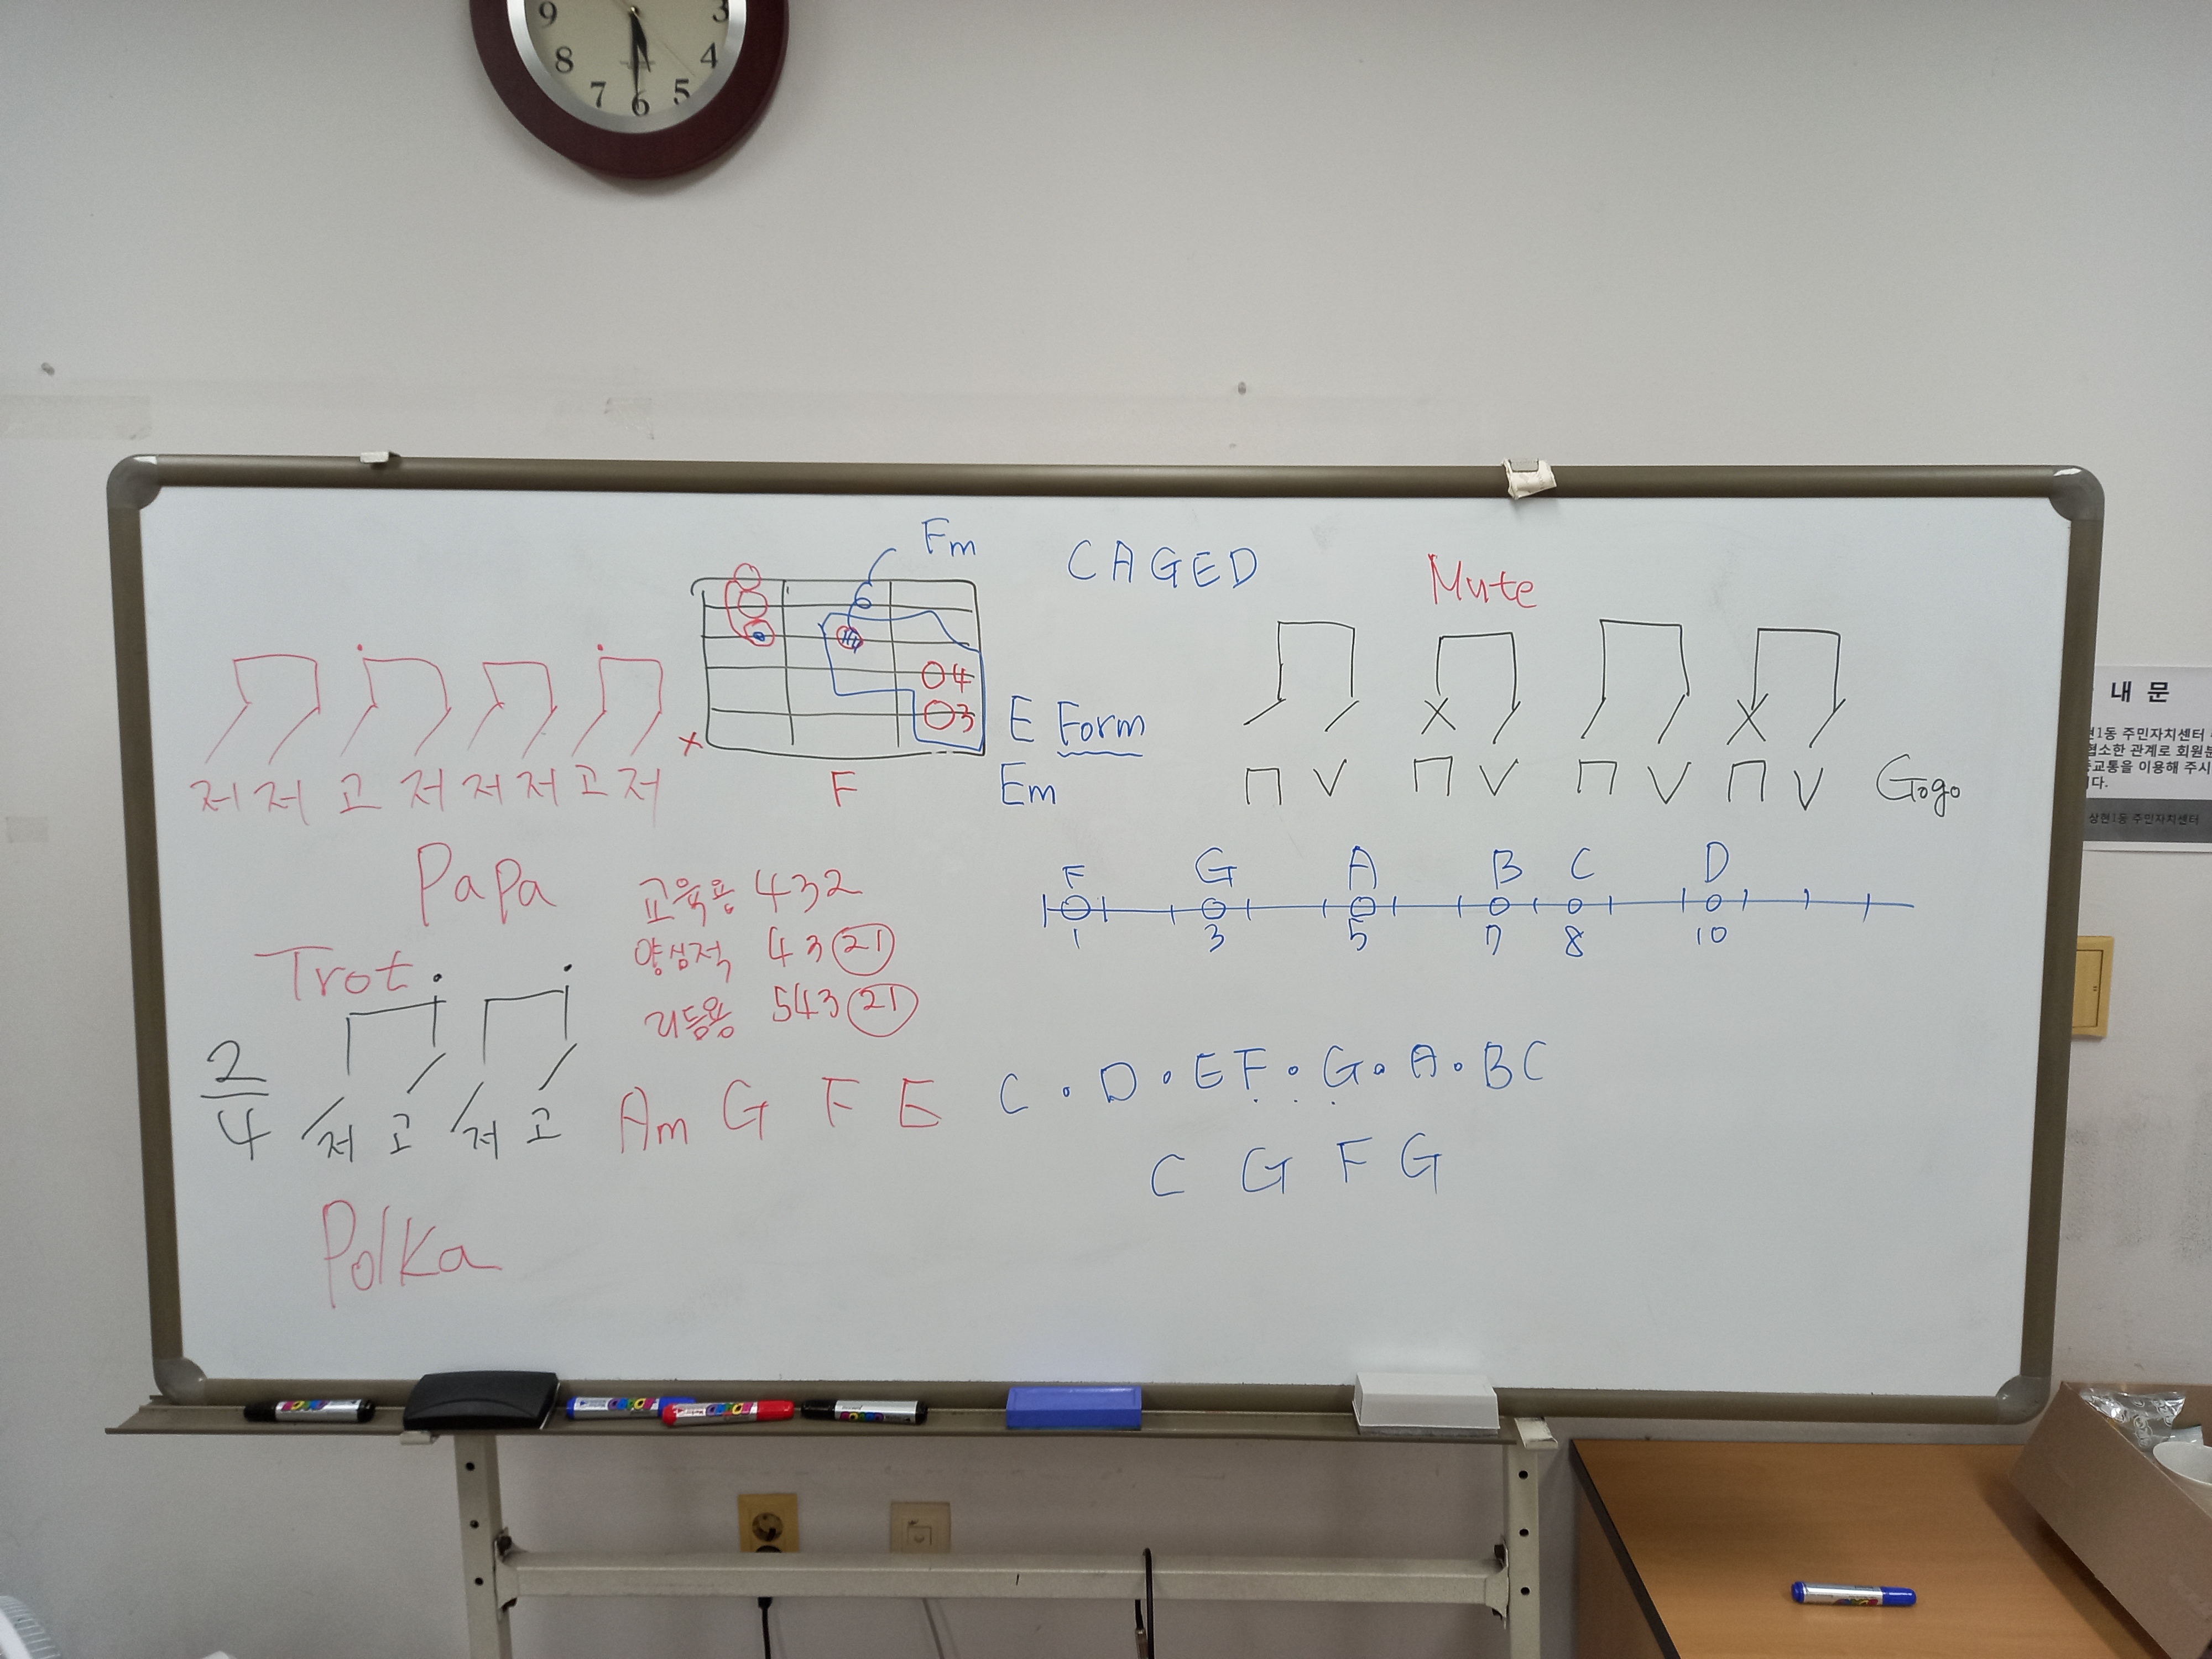 9 3
8 4
7 6 5
Fm
CAGED
Mute
04
03
×
E Form
F
Em
저 저 고 저 저 저 고 저
Π V Π V Π V Π V Gogo
Papa
교육용 432
양심적 43 21
리듬용 543 21
F G A B C D
1 3 5 7 8 10
Trot
2/4
저 고 저 고
Am G F E
C · D · E F · G · A · B C
C G F G
Polka
내 문
1동 주민자치센터
협소한 관계로 회원분
교통을 이용해 주시
다.
상현1동 주민자치센터